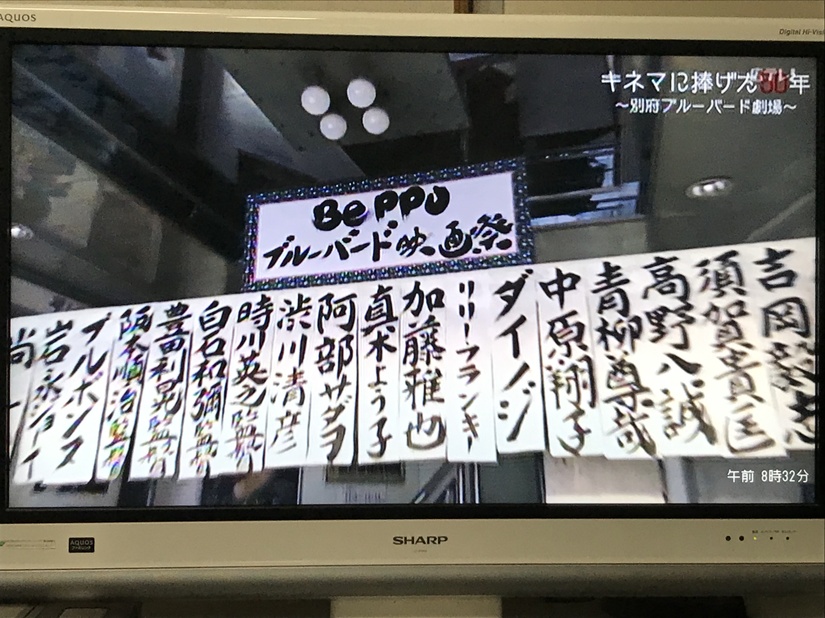 AQUOS
Digital Hi-Vis
キネマに捧げた80年
～別府ブルーバード劇場～
Be PPU
ブルーバード映画祭
吉岡毅志
須賀貴匡
高野八誠
青柳尊哉
中原翔子
ダイノジ
リリーフランキー
加藤雅也
真木よう子
阿部サダヲ
渋川清彦
時川英之監督
白石和彌監督
豊田利晃監督
阪本順治監督
ブルボンヌ
岩永ジョーイ
尚
午前 8時32分
SHARP
AQUOS